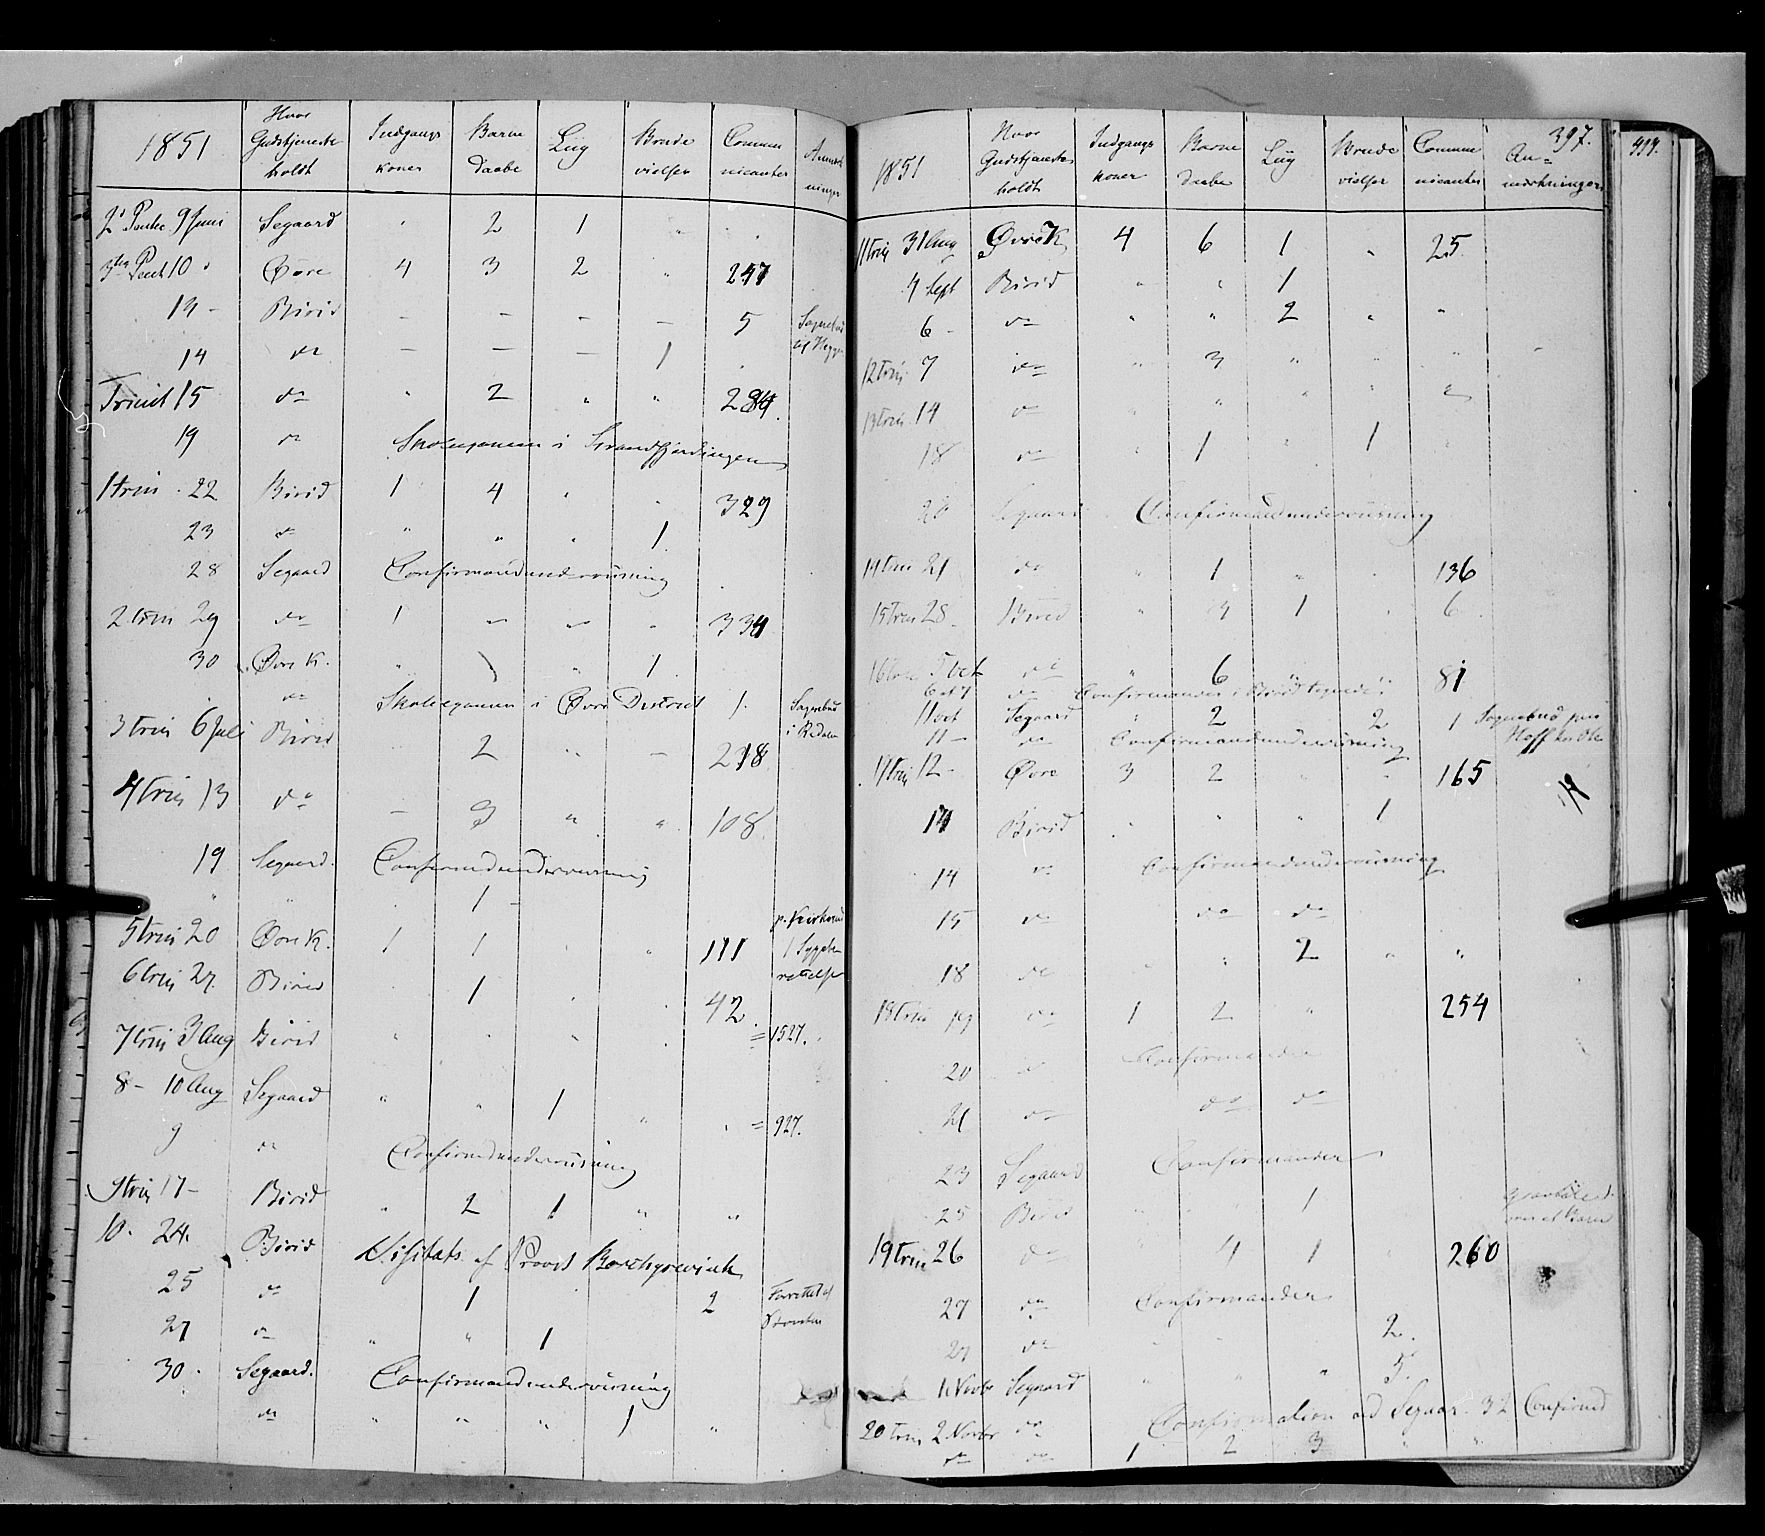 1851 Hvor Gudstjeneste holdt Indgangs koner Barne daabe Liig Brude vielser Commu nicanter Anmærk ninger
2d Pentec. 9 Juni Segaard " 2 1 " "
3die Pent 10 d Øvre 4 3 2 " 247
14 - Birid - - - - 5 Sognebud
14 do - - - 1 .
Trinit 15 do " 2 " " 284
19 do Skoleexamen i Strandfjerdingen
1 trin 22 Birid 1 4 " . 329
23 do " " " 1
28 Segaard Confirmandundervisning
2 trin 29 do 1 " " " 334
30 Øvre K. " \ " 1
do Skoleexamen i Øvre District 1. Sognebud i Redalen
3 trin 6 Juli Birid 2 " - 218
4 trin 13 do - 3 " " 108
19 Segaard. Confirmandundervisning
" " . 1 -
5 trin 20 Øvre K. 1 1 . " 111 1 Sygebe rettelse
6 trin 27. Birid . 1 . . 42
7 trin 3 Aug Birid " . " . = 1527.
8 - 10 Aug Segaard " " 1 " . = 927.
9 do Confirmandundervisning
9 trin 17 - Birid " 2 1 " "
10. 24. Birid Visitats af Provst Borchgrevink
25 do 1 2 Forrettet af
27 do " " 1
30. Segaard. Confirmandundervisning
do " " " 1 "
397.
1851 Hvor Gudstjeneste holdt Indgangs koner Barne daabe Liig Brude vielser Commu nicanter An= mærkninger
11 trin 31 Aug Øvre K 4 6 1 " 25
4 Sept Birid " " 1
6 - do " " 2 " "
12 trin 7 do " 3 " " "
13 trin 14 do " " " " "
18 do " 1 " 1 "
20 Segaard Confirmandundervisning
14 trin 21 do " 1 " . 136
15 trin 28. Birid " 4 1 . 6
16 trin 5 oct do " 6 " " 81
6 et 7 do Confirmander i Birid
11 oct Segaard " 2 2 1 Sognebud
11 - do Confirmandundervisning
17 trin 12 - Øvre 3 2 " - 165
14 Birid . " " 1
14 do Confirmandundervisning
15 do do do
18 do " " 2 " "
18 trin 19 do 1 2 " 254
20 do Confirmander
21 do do do
23 Segaard Confirmander
25 Birid " " 1
19 trin 26 do " 4 1 260
27 do Confirmander
27 do " " 2.
1 Novbr Segaard " " " 5.
20 trin 2 Novbr do Confirmation ved Segaar. 32 Confirmed
do do 1 2 3 " "